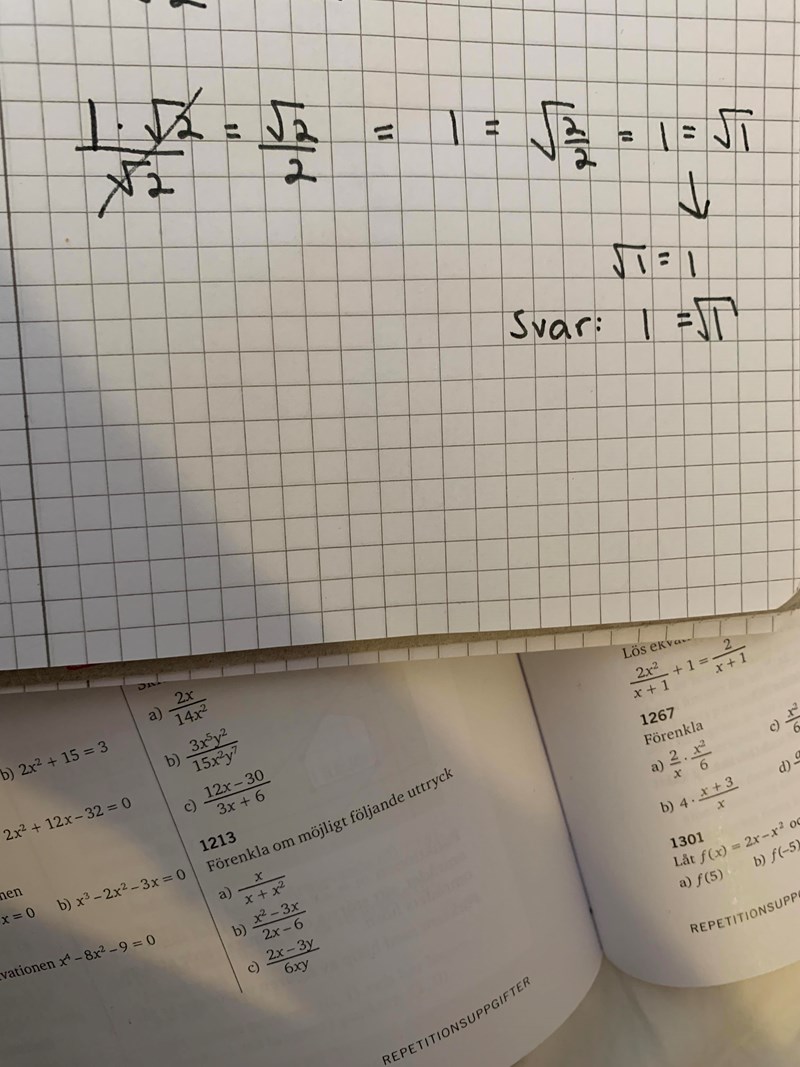 2
1 · √2 / √2 = √2 / 2 = 1 = √(2/2) = 1 = √1
↓
√1 = 1
Svar: 1 = √1
b) 2x² + 15 = 3
2x² + 12x − 32 = 0
x = 0 b) x³ − 2x² − 3x = 0
x⁴ − 8x² − 9 = 0
a) 2x / 14x²
b) 3x⁵y² / 15x²y⁷
c) (12x − 30) / (3x + 6)
1213
Förenkla om möjligt följande uttryck
a) x / (x + x²)
b) (x² − 3x) / (2x − 6)
c) (2x − 3y) / 6xy
REPETITIONSUPPGIFTER
Lös
2x² / (x + 1) + 1 = 2 / (x + 1)
1267
Förenkla
a) 2/x · x²/6 c)
b) 4 · (x + 3)/x d)
1301
Låt f(x) = 2x − x²
a) f(5) b) f(−5)